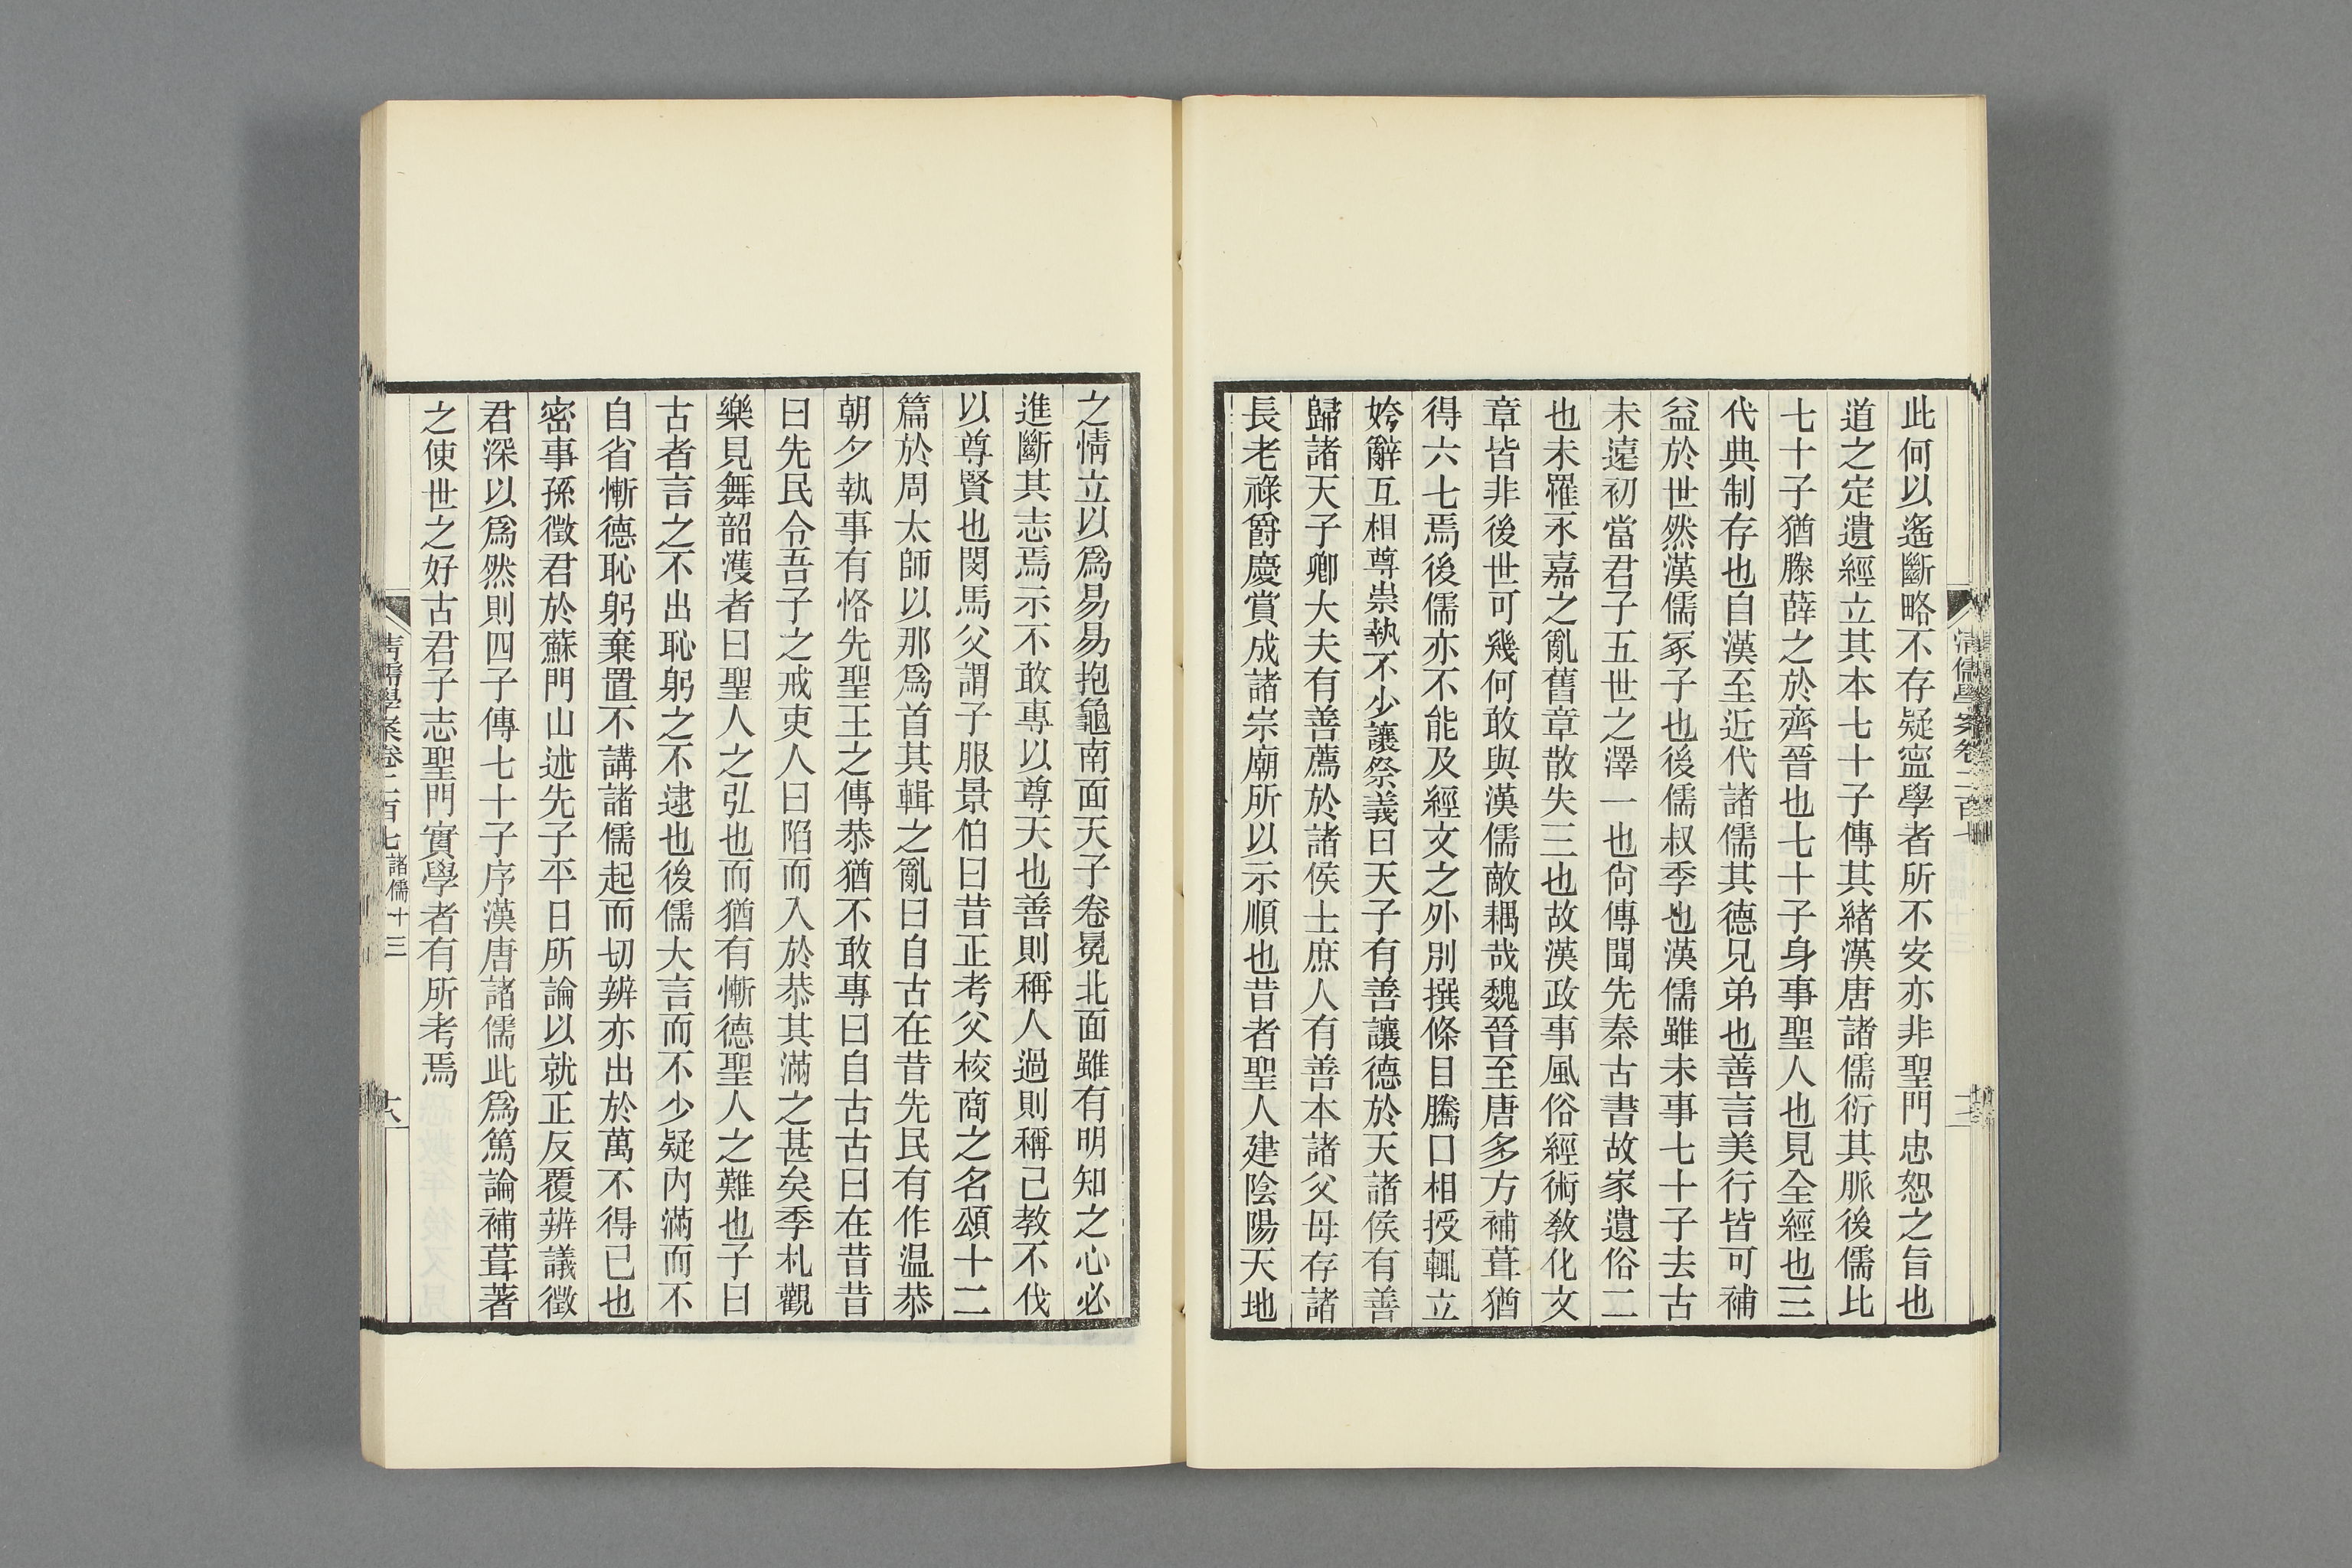 此何以遙斷略不存疑寍學者所不安亦非聖門忠恕之旨也
道之定遺經立其本七十子傳其緒漢唐諸儒衍其脈後儒比
七十子猶滕薛之於齊晉也七十子身事聖人也見全經也三
代典制存也自漢至近代諸儒其德兄弟也善言美行皆可補
益於世然漢儒冢子也後儒叔季也漢儒雖未事七十子去古
未遠初當君子五世之澤一也尙傳聞先秦古書故家遺俗二
也未罹永嘉之亂舊章散失三也故漢政事風俗經術敎化文
章皆非後世可幾何敢與漢儒敵耦哉魏晉至唐多方補葺猶
得六七焉後儒亦不能及經文之外別撰條目騰口相授輒立
姱辭互相尊崇執不少讓祭義曰天子有善讓德於天諸侯有善
歸諸天子卿大夫有善薦於諸侯士庶人有善本諸父母存諸
長老祿爵慶賞成諸宗廟所以示順也昔者聖人建陰陽天地
之情立以爲易易抱龜南面天子卷冕北面雖有明知之心必
進斷其志焉示不敢專以尊天也善則稱人過則稱己教不伐
以尊賢也閔馬父謂子服景伯曰昔正考父校商之名頌十二
篇於周太師以那爲首其輯之亂曰自古在昔先民有作温恭
朝夕執事有恪先聖王之傳恭猶不敢專曰自古古曰在昔昔
曰先民令吾子之戒吏人曰陷而入於恭其滿之甚矣季札觀
樂見舞韶濩者曰聖人之弘也而猶有慚德聖人之難也子曰
古者言之不出恥躬之不逮也後儒大言而不少疑內滿而不
自省慚德恥躬棄置不講諸儒起而切辨亦出於萬不得已也
密事孫徵君於蘇門山述先子平日所論以就正反覆辨議徵
君深以爲然則四子傳七十子序漢唐諸儒此爲篤論補葺著
之使世之好古君子志聖門實學者有所考焉
清儒學案卷二百七 諸儒十三